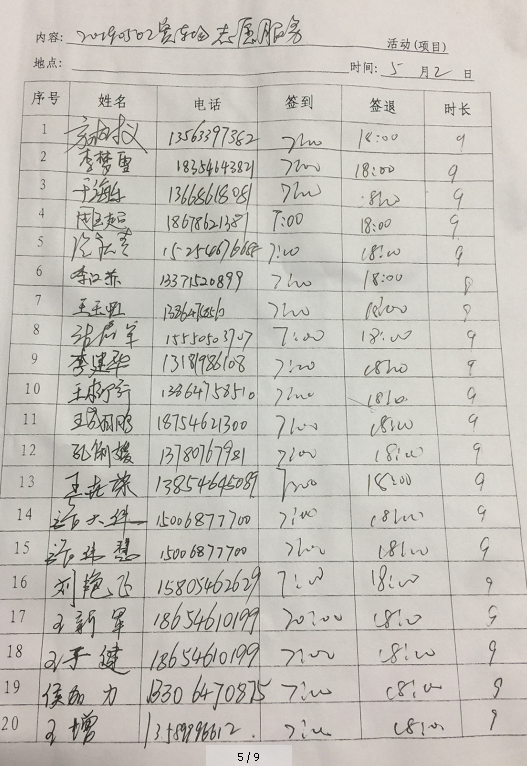 内容: 20190502 志愿服务 活动(项目)
地点: 时间: 5 月 2 日
序号 姓名 电话 签到 签退 时长
1 13563397382 7:00 18:00 9
2 李梦雪 18354643821 7:00 18:00 9
3 于海 13668618081 7:00 18:00 9
4 18678621387 7:00 18:00 9
5 15254676688 7:00 18:00 9
6 李 13371520899 7:00 18:00 8
7 王玉虹 7:00 18:00 9
8 军 15550503707 7:00 18:00 9
9 李建华 1318986108 7:00 18:00 9
10 王 13864758510 7:00 18:00 9
11 王 鹏 18754621300 7:00 18:00 9
12 孔 媛 13780767981 7:00 18:00 9
13 王 13854645089 7:00 18:00 9
14 15006877700 7:00 18:00 9
15 慧 15006877700 7:00 18:00 9
16 刘艳飞 15805462629 7:00 18:00 9
17 王新军 18654610199 20:00 18:00 9
18 王子健 18654610199 7:00 18:00 9
19 侯 力 13306470875 7:00 18:00 9
20 王增 13589996612. 7:00 18:00 9
5 / 9